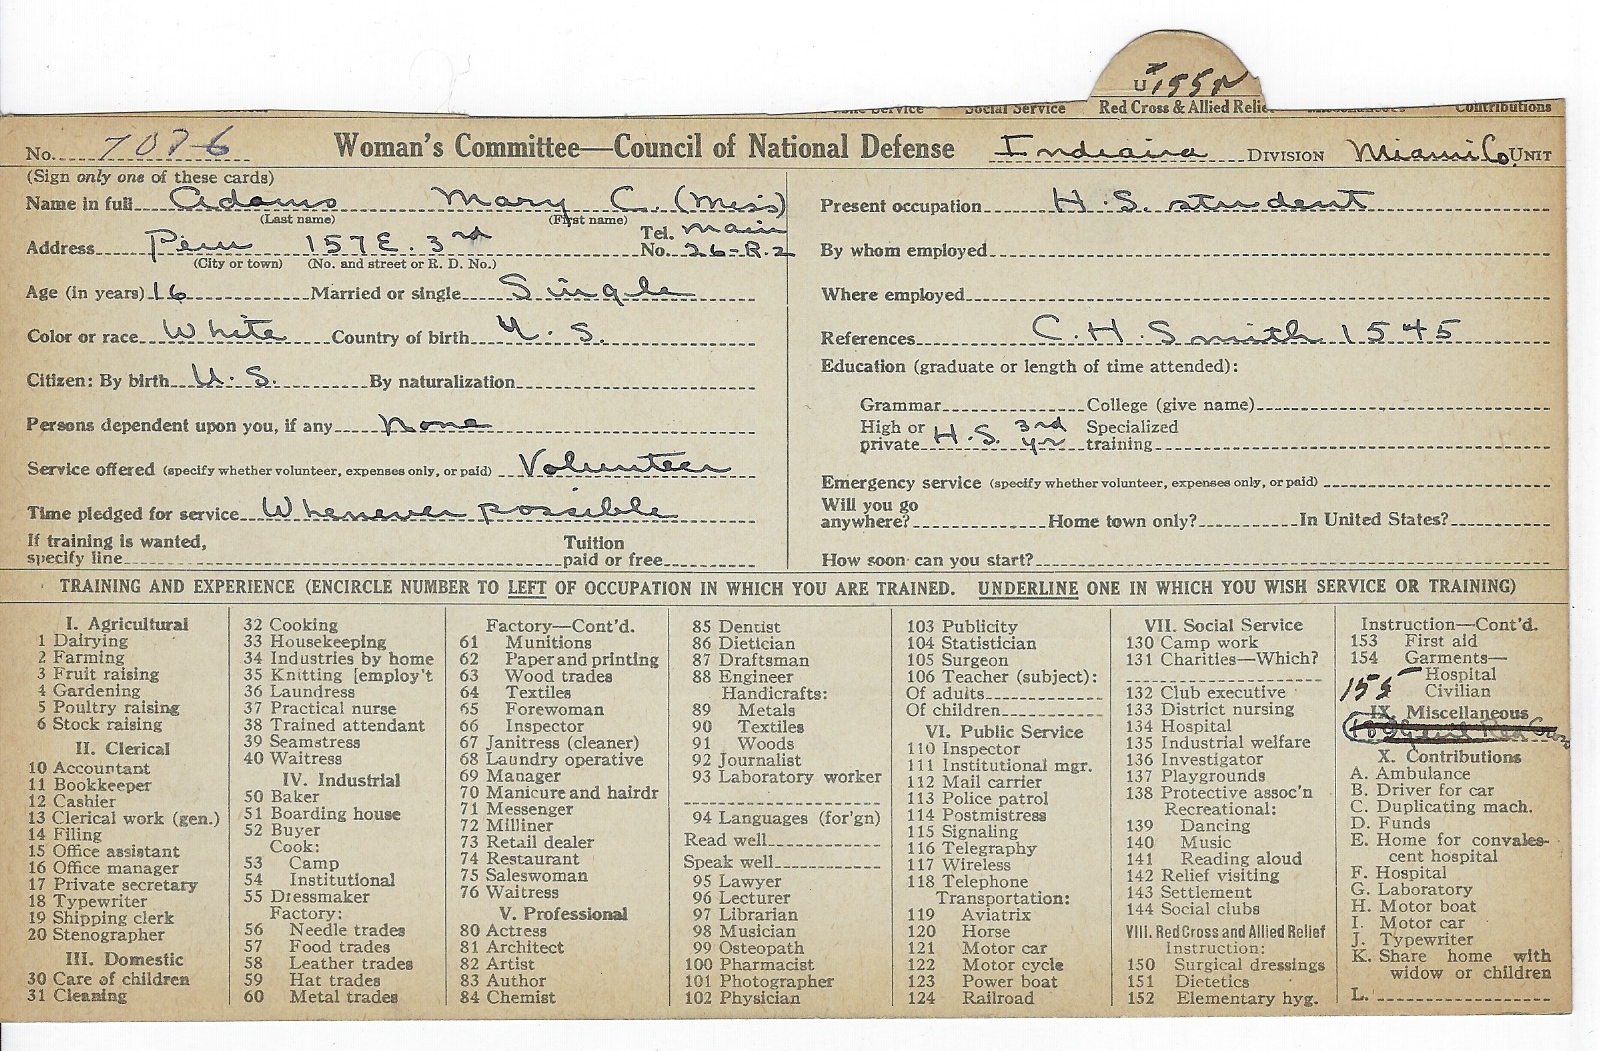 U 155
Social Service Red Cross & Allied Relie Contributions
No. 7076 Woman's Committee—Council of National Defense Indiana DIVISION Miami Co. UNIT
(Sign only one of these cards)
Name in full Adams Mary C. (Miss)
(Last name) (First name)
Address Peru 157 E. 3rd Tel. No. Main 26-R.2
(City or town) (No. and street or R. D. No.)
Age (in years) 16 Married or single Single
Color or race White Country of birth U.S.
Citizen: By birth U.S. By naturalization
Persons dependent upon you, if any none
Service offered (specify whether volunteer, expenses only, or paid) Volunteer
Time pledged for service Whenever possible
If training is wanted,
specify line Tuition paid or free
Present occupation H.S. student
By whom employed
Where employed
References C. H. Smith 1545
Education (graduate or length of time attended):
Grammar College (give name)
High or private H.S. 3rd yr Specialized training
Emergency service (specify whether volunteer, expenses only, or paid)
Will you go
anywhere? Home town only? In United States?
How soon can you start?
TRAINING AND EXPERIENCE (ENCIRCLE NUMBER TO LEFT OF OCCUPATION IN WHICH YOU ARE TRAINED. UNDERLINE ONE IN WHICH YOU WISH SERVICE OR TRAINING)
I. Agricultural
1 Dairying
2 Farming
3 Fruit raising
4 Gardening
5 Poultry raising
6 Stock raising
II. Clerical
10 Accountant
11 Bookkeeper
12 Cashier
13 Clerical work (gen.)
14 Filing
15 Office assistant
16 Office manager
17 Private secretary
18 Typewriter
19 Shipping clerk
20 Stenographer
III. Domestic
30 Care of children
31 Cleaning
32 Cooking
33 Housekeeping
34 Industries by home
35 Knitting [employ't
36 Laundress
37 Practical nurse
38 Trained attendant
39 Seamstress
40 Waitress
IV. Industrial
50 Baker
51 Boarding house
52 Buyer
Cook:
53 Camp
54 Institutional
55 Dressmaker
Factory:
56 Needle trades
57 Food trades
58 Leather trades
59 Hat trades
60 Metal trades
Factory—Cont'd.
61 Munitions
62 Paper and printing
63 Wood trades
64 Textiles
65 Forewoman
66 Inspector
67 Janitress (cleaner)
68 Laundry operative
69 Manager
70 Manicure and hairdr
71 Messenger
72 Milliner
73 Retail dealer
74 Restaurant
75 Saleswoman
76 Waitress
V. Professional
80 Actress
81 Architect
82 Artist
83 Author
84 Chemist
85 Dentist
86 Dietician
87 Draftsman
88 Engineer
Handicrafts:
89 Metals
90 Textiles
91 Woods
92 Journalist
93 Laboratory worker
94 Languages (for'gn)
Read well
Speak well
95 Lawyer
96 Lecturer
97 Librarian
98 Musician
99 Osteopath
100 Pharmacist
101 Photographer
102 Physician
103 Publicity
104 Statistician
105 Surgeon
106 Teacher (subject):
Of adults
Of children
VI. Public Service
110 Inspector
111 Institutional mgr.
112 Mail carrier
113 Police patrol
114 Postmistress
115 Signaling
116 Telegraphy
117 Wireless
118 Telephone
Transportation:
119 Aviatrix
120 Horse
121 Motor car
122 Motor cycle
123 Power boat
124 Railroad
VII. Social Service
130 Camp work
131 Charities—Which?
132 Club executive
133 District nursing
134 Hospital
135 Industrial welfare
136 Investigator
137 Playgrounds
138 Protective assoc'n
Recreational:
139 Dancing
140 Music
141 Reading aloud
142 Relief visiting
143 Settlement
144 Social clubs
VIII. Red Cross and Allied Relief
Instruction:
150 Surgical dressings
151 Dietetics
152 Elementary hyg.
Instruction—Cont'd.
153 First aid
154 Garments—
Hospital
155 Civilian
IX. Miscellaneous
Red Cross
X. Contributions
A. Ambulance
B. Driver for car
C. Duplicating mach.
D. Funds
E. Home for convales-
cent hospital
F. Hospital
G. Laboratory
H. Motor boat
I. Motor car
J. Typewriter
K. Share home with
widow or children
L.